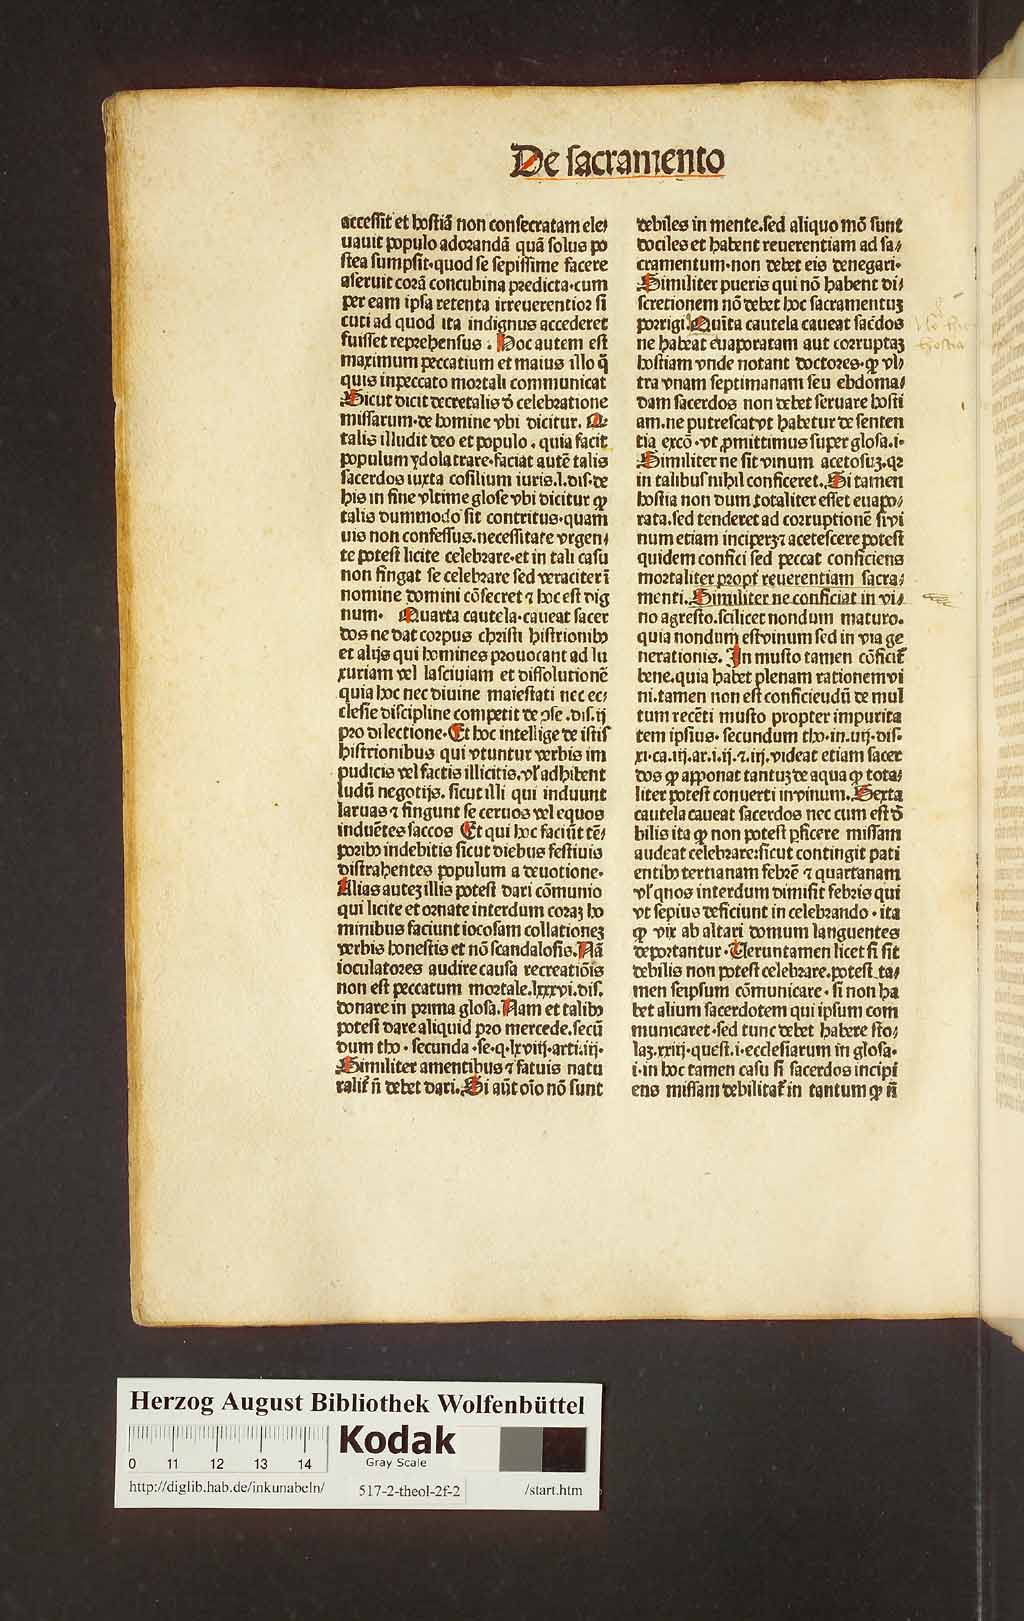 De sacramento
accessit et hostiã non consecratam ele⸗
uauit populo adorandã quã solus po
stea sumpsit·quod se sepissime facere
aseruit corã concubina predicta·cum
per eam ipsa retenta irreuerentior si
cuti ad quod ita indignus accederet
fuisset reprehensus. Hoc autem est
maximum peccatium et maius illo q̃
quis inpeccato mortali communicat
Sicut dicit decretalis d̃ celebratione
missarum·de homine vbi dicitur. Q
talis illudit deo et populo. quia facit
populum ydolatrare·faciat autẽ talis
sacerdos iuxta cosilium iuris.l.dis.de
his in fine vltime glose vbi dicitur ꝙ
talis dummodo sit contritus·quam
uis non confessus.necessitate vrgen⸗
te potest licite celebrare·et in tali casu
non fingat se celebrare sed veraciter ĩ
nomine domini cõsecret ⁊ hoc est dig
num. Quarta cautela·caueat sacer
dos ne dat corpus christi histrionibꝰ
et alijs qui homines prouocant ad lu
xuriam vel lasciuiam et dissolutionẽ
quia hoc nec diuine maiestati nec ec⸗
clesie discipline competit de ꝯse.dis.ij
pro dilectione·Et hoc intellige de istis
histrionibus qui vtuntur verbis im
pudicis vel factis illicitis.vl̃ adhibent
ludũ negotijs. sicut illi qui induunt
laruas ⁊ fingunt se ceruos vel equos
induẽtes saccos Et qui hoc faciũt tẽ⸗
poribꝰ indebitis sicut diebus festiuis
distrahentes populum a deuotione·
Alias auteꝫ illis potest dari cõmunio
qui licite et ornate interdum coraꝫ ho
minibus faciunt iocosam collationeꝫ
verbis honestis et nõ scandalosis.Nã
ioculatores audire causa recreatiõis
non est peccatum mortale.lxxxvi.dis.
donare in prima glosa.Nam et talibꝰ
potest dare aliquid pro mercede.secũ
dum tho·secunda·se·q·lxviij·arti.iij·
Similiter amentibus ⁊ fatuis natu
ralit̃ ñ debet dari.Si aũt oĩo nõ sunt
debiles in mente.sed aliquo mõ sunt
dociles et habent reuerentiam ad sa⸗
cramentum·non debet eis denegari·
Similiter pueris qui nõ habent di⸗
scretionem nõ debet hoc sacramentuꝫ
porrigi Quĩta cautela caueat sac̃dos
ne habeat euaporatam aut corruptaꝫ
hostiam vnde notant doctores·ꝙ vl⸗
tra vnam septimanam seu ebdoma⸗
dam sacerdos non debet seruare hosti
am.ne putrescat vt habetur de senten
tia excõ·vt ꝓmittimus super glosa.i·
Similiter ne sit vinum acetosuꝫ.qꝛ
in talibus nihil conficeret.Si tamen
hostia non dum totaliter esset euapo⸗
rata.sed tenderet ad corruptionẽ si vi
num etiam inciperꝫ acetescere potest
quidem confici sed peccat conficiens
mortaliter propt̃ reuerentiam sacra⸗
menti.Similiter ne conficiat in vi⸗
no agresto.scilicet nondum maturo.
quia nondum est vinum sed in via ge
nerationis. In musto tamen cõficit̃
bene.quia habet plenam rationem vi
ni.tamen non est conficieudũ de mul
tum recẽti musto propter impurita
tem ipsius· secundum tho·in.iiij·dis·
xi·ca.iij.ar.i.ij.⁊.iij.videat etiam sacer
dos ꝙ apponat tantuꝫ de aqua ꝙ tota⸗
liter potest conuerti in vinum.Sexta
cautela caueat sacerdos nec cum est d̃
bilis ita ꝙ non potest ꝑficere missam
audeat celebrare:sicut contingit pati
entibꝰ tertianam febrẽ ⁊ quartanam
vl̃ qnos interdum dimisit febris qui
vt sepius deficiunt in celebrando·ita
ꝙ vix ab altari domum languentes
deportantur·Ueruntamen licet si sit
debilis non potest celebrare.potest ta⸗
men seipsum cõmunicare·si non ha
bet alium sacerdotem qui ipsum com
municaret·sed tunc debet habere sto⸗
laꝫ.xxiij·quest.i·ecclesiarum in glosa·
i·in hoc tamen casu si sacerdos incipi
ens missam debilitat̃ in tantum ꝙ ñ
hostia
Herzog August Bibliothek Wolfenbüttel
0 11 12 13 14
Kodak
Gray Scale
http://diglib.hab.de/inkunabeln/ 517-2-theol-2f-2 /start.htm